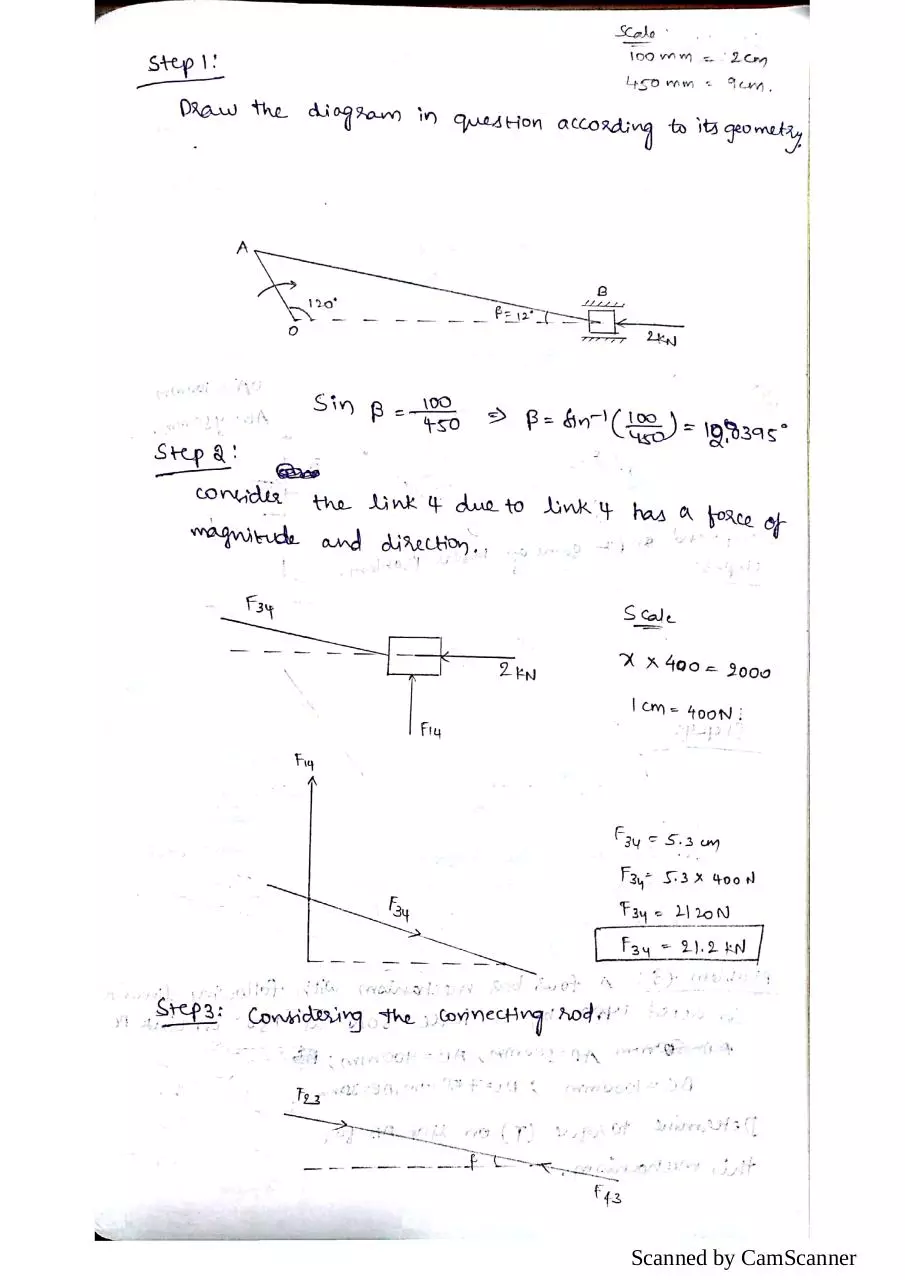 Scale
100 mm = 2cm
450 mm = 9cm.
Step 1:
Draw the diagram in question according to its geometry.
A
120°
O
β=12°
B
2kN
Sin β = 100/450 ⇒ β = Sin⁻¹(100/450) = 12.8395°
Step 2:
consider the link 4 due to link 4 has a force of
magnitude and direction.
F34
2 KN
F14
Scale
x × 400 = 2000
1 cm = 400N
F14
F34
F34 = 5.3 cm
F34 = 5.3 × 400 N
F34 = 2120N
F34 = 21.2 kN
Step3: Considering the connecting rod.
F23
β
F43
Scanned by CamScanner